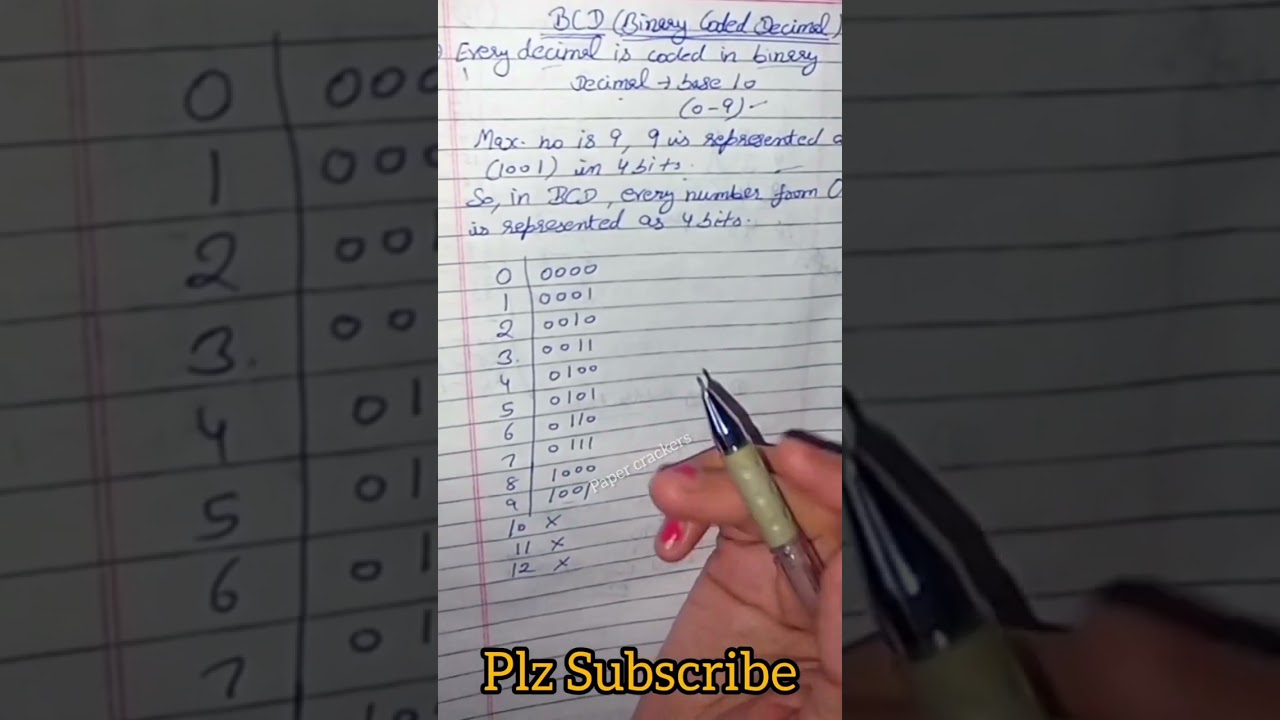 BCD (Binary Coded Decimal)
Every decimal is coded in binary
Decimal → base 10
(0-9)
Max. no is 9, 9 is represented a
(1001) in 4 bits.
So, in BCD, every number from 0
is represented as 4 bits.
0 0000
1 0001
2 0010
3. 0011
4 0100
5 0101
6 0110
7 0111
8 1000
9 1001
10 ×
11 ×
12 ×
Paper crackers
Plz Subscribe
0 000
1 000
2 001
3. 00
4 01
5 01
6 01
7 01
10